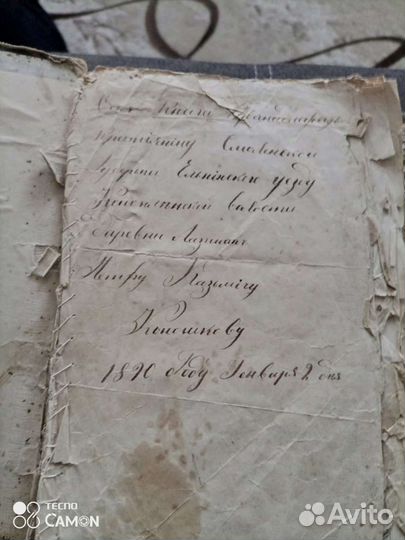 Сия Книга
крестянину Смоленской
Губерни Ельнинского уезду
валости
Деревни
Петру Казьмичу
Коношкову
1890 Году Генваря 2 дня
TECNO
CAMON
Avito